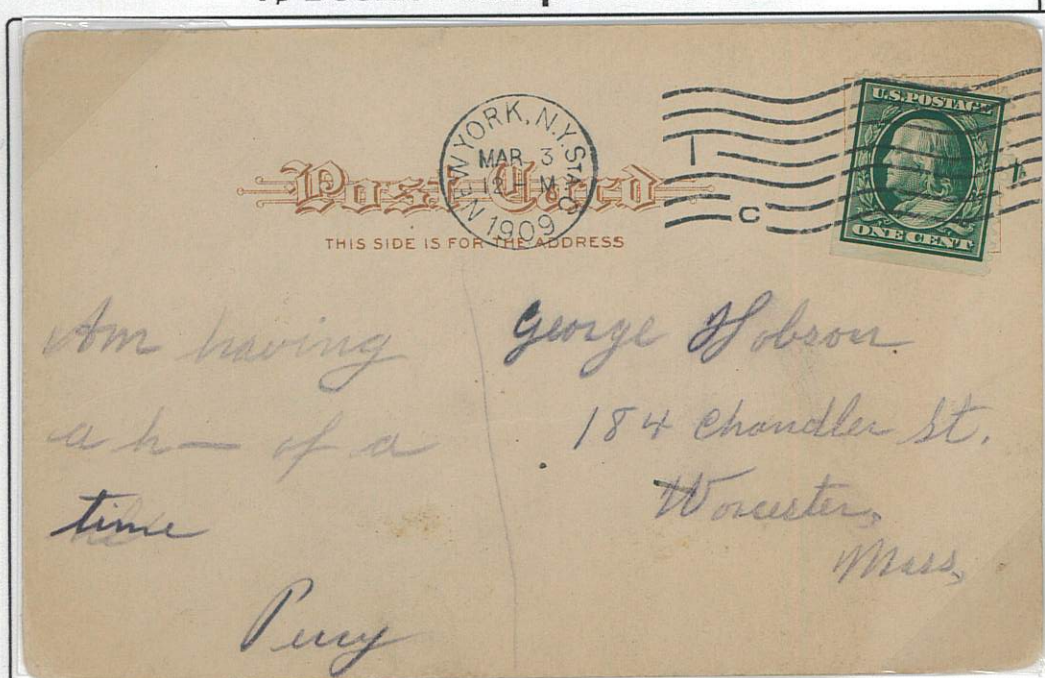 NEW YORK, N.Y. STA. O
MAR 3
12 M
1909
C
U.S. POSTAGE
ONE CENT
Post Card
THIS SIDE IS FOR THE ADDRESS
Am having
a h— of a
time
Perry
George Hobson
184 Chandler St.
Worcester,
Mass,